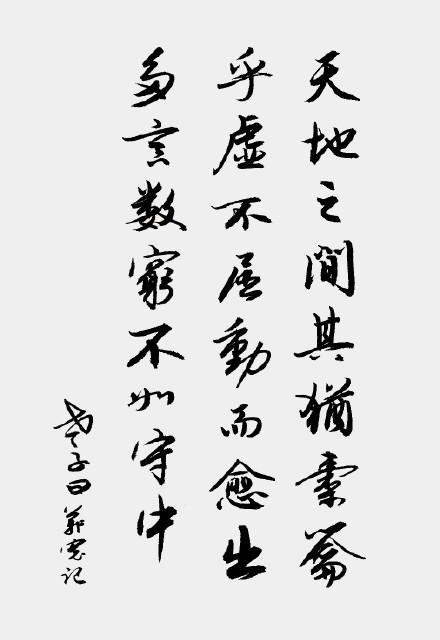 天地之間其猶橐籥
乎虚不屈動而愈出
多言数窮不如守中
老子曰